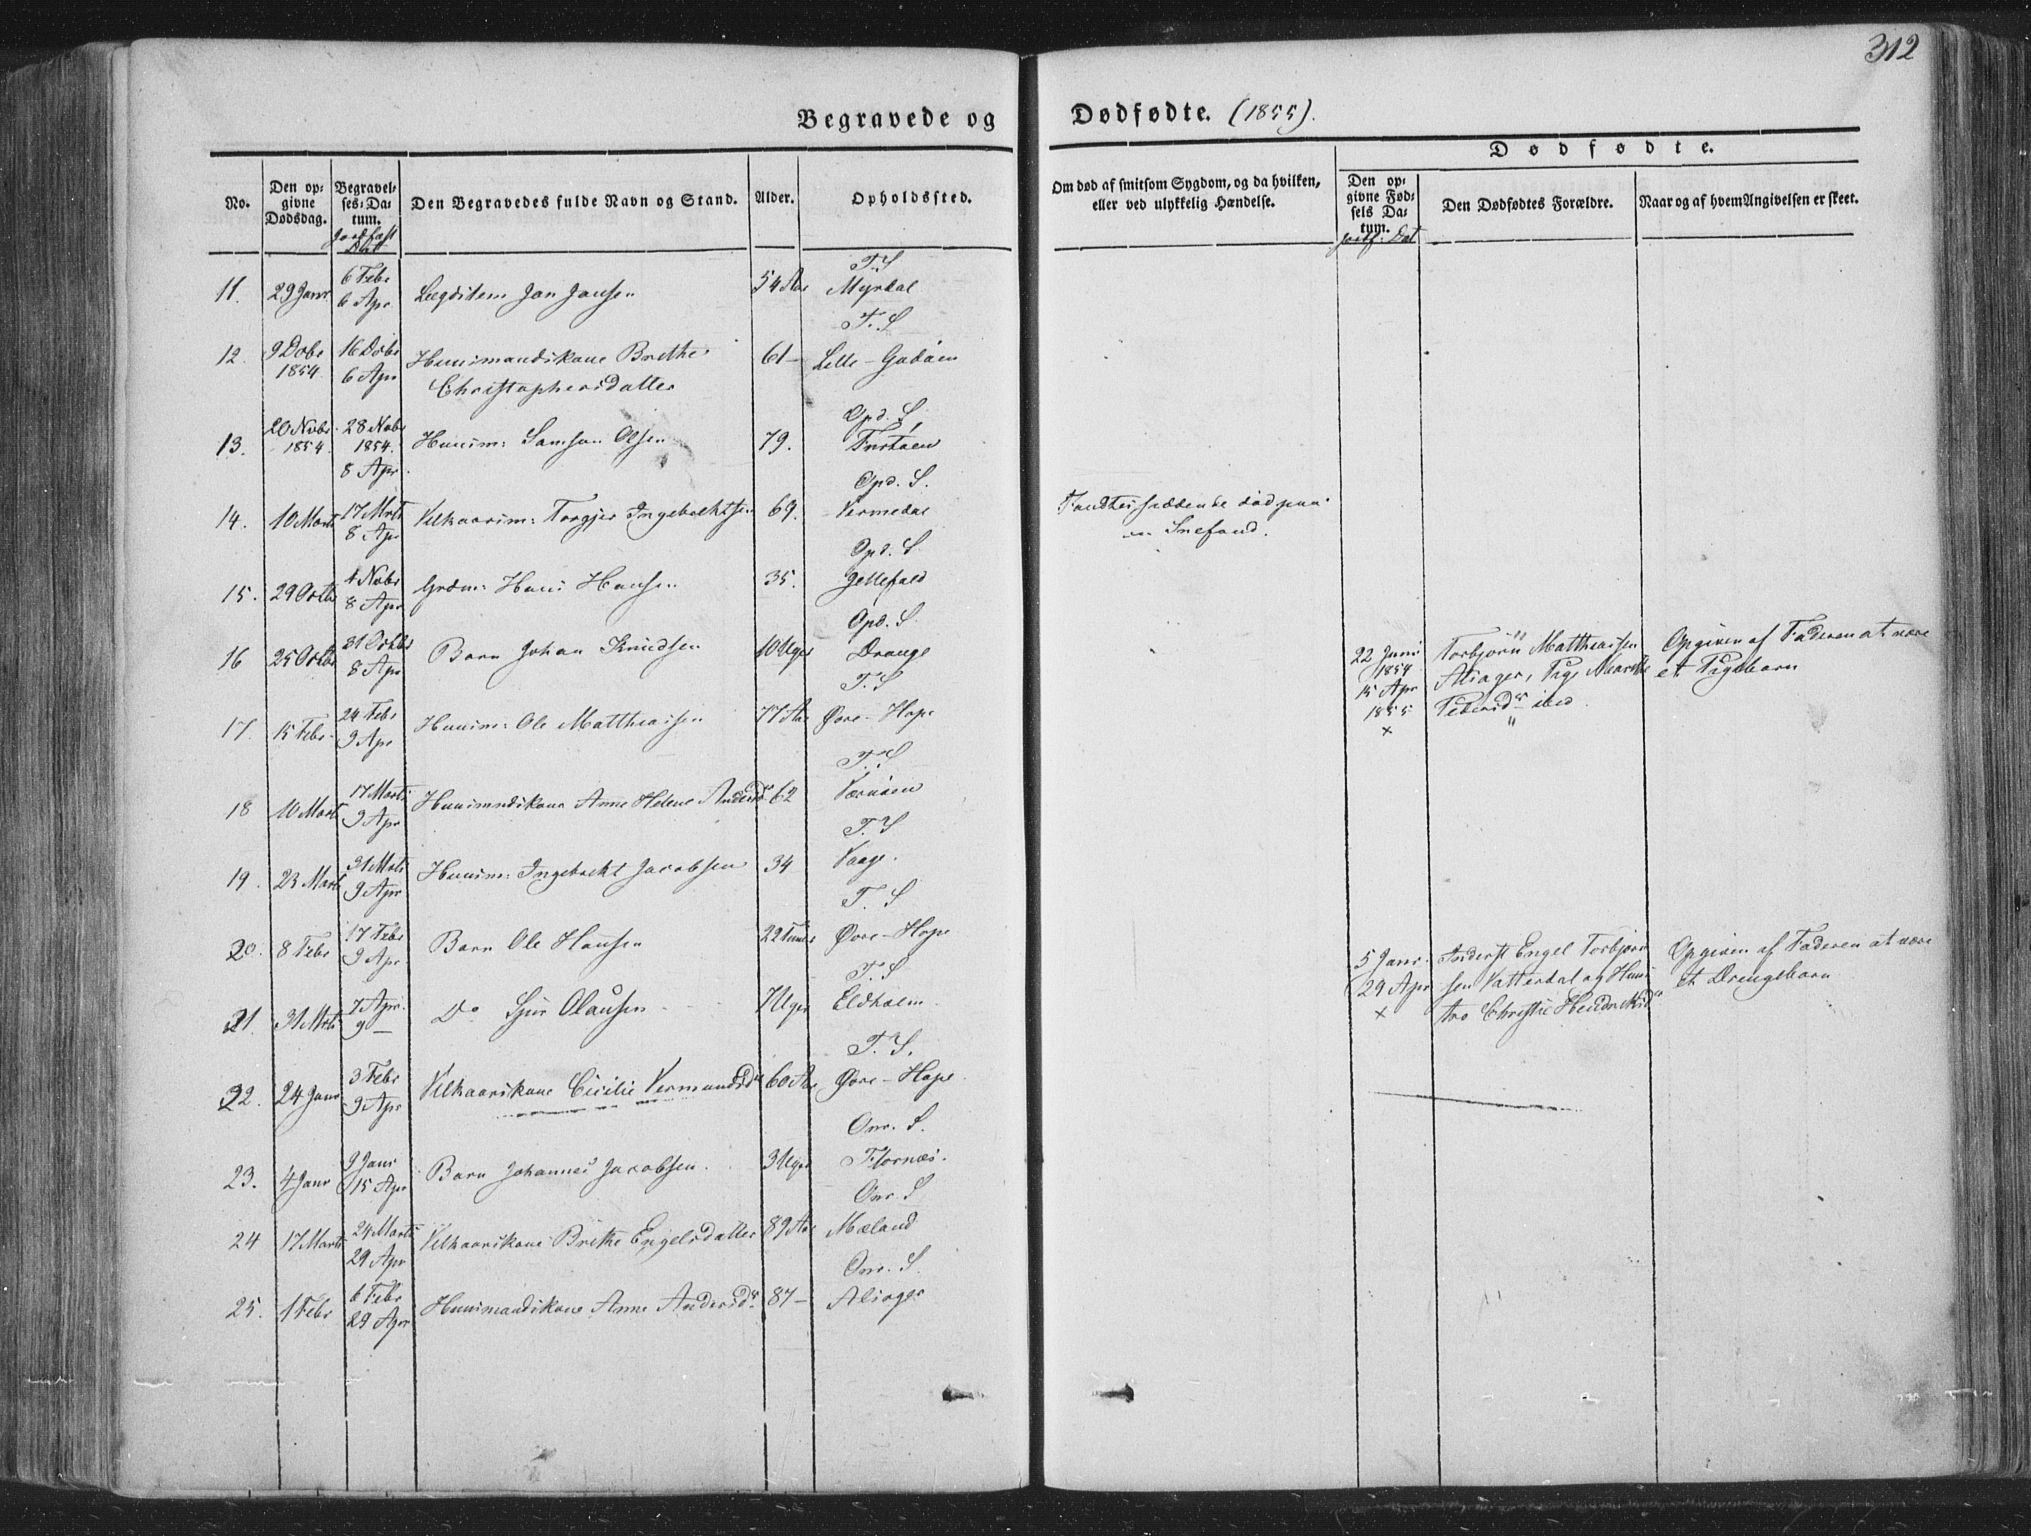 312
Begravede og Dødfødte. (1855).
Dødfødte.
No.
Den op-
givne
Dødsdag.
Begravel-
ses-Da-
tum.
Jordfæst
Dat
Den Begravedes fulde Navn og Stand.
Alder.
Opholdssted.
Om død af smitsom Sygdom, og da hvilken,
eller ved ulykkelig Hændelse.
Den op-
givne Fød-
sels Da-
tum.
Den Dødfødtes Forældre.
Naar og af hvem Angivelsen er skeet.
T. S
11. 29 Janr 6 Febr Jon Jansen 54 Aar Myrdal
6 Apr
T. S
12. 9 Dcbr 16 Dcbr Huusmandskone Brithe 61 – Lille-Godøen
1854 6 Apr Christophersdatter
Opd. S.
13. 20 Nvbr 28 Nvbr Huusm: Samson Olsen 79.
1854 1854.
8 Apr.
Opd. S.
14. 10 Marts 17 Mrts Vilkaarsm: Torgjer Ingebrektsen 69. Vermedal
8 Apr
død paa
en Snefond.
Opd. S.
15. 29 Octbr 4 Nvbr Grdm: Hans Hansen 35. Jettefald
8 Apr
Opd. S.
16 25 Octbr 31 Octbr Barn Johan Knudsen 10 Uger Drange
8 Apr
22 Juni
1854
15 Apr
1855
×
Torbjörn Matthiassen
Alsager, Pige Marthe
Pedersdr ibid.
Opgiven af Faderen at være
et Pigebarn
T. S
17. 15 Febr. 24 Febr Huusm: Ole Matthiassen 77 Aar Øvre-Hope
9 Apr
T. S
18 10 Marts 17 Marts Huusmndskone Anne Helene Andersdr 62
9 Apr
T. S
19. 23 Marts 31 Mrts Huusm: Ingebrikt Jacobsen 34 Vaage.
9 Apr
T. S
20. 8 Febr 17 Febr Barn Ole Hansen 22 Øvre-Hope
9 Apr
5 Janr.
29 Apr
×
Engel Torbjörn-
sen Vatterdal og Huus-
tro Christie
Opgiven af Faderen at være
et Drengebarn
T. S
21. 31 Mrts 7 Apr. Do Sjur Olausen 7 Uger Eldholm
9 –
T. S.
22. 24 Janr 3 Febr Vilkaarskone Cicilie Vermundsdr 60 Aar Øvre-Hope.
9 Apr
Onr. S.
23. 4 Janr 9 Janr Barn Johannes Jacobsen. 3 Uger Flornæs.
15 Apr
Onr. S
24 17 Marts 24 Marts Vilkaarskone Brithe Engelsdatter 89 Aar Mæland
29 Apr
Onr. S.
25. 1 Febr 6 Febr Huusmandskone Anne Andersdr 87 – Alsager
29 Apr